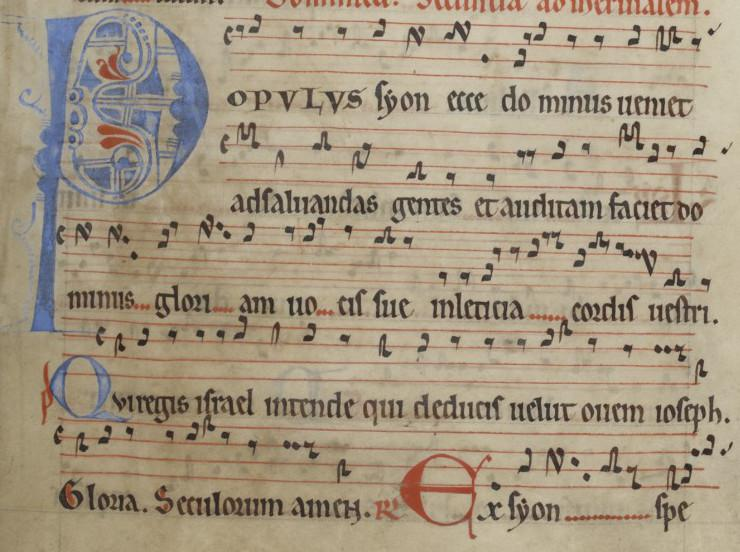 Dominica. Secunda ad iherusalem.
POPVLVS syon ecce do minus ueniet
adsaluandas gentes et auditam faciet do
minus... glori.... am uo... cis sue inleticia ...... cordis uestri.
p Qviregis israel intende qui deducis uelut ouem ioseph.
Gloria. Seculorum amen. R Ex syon .............. spe